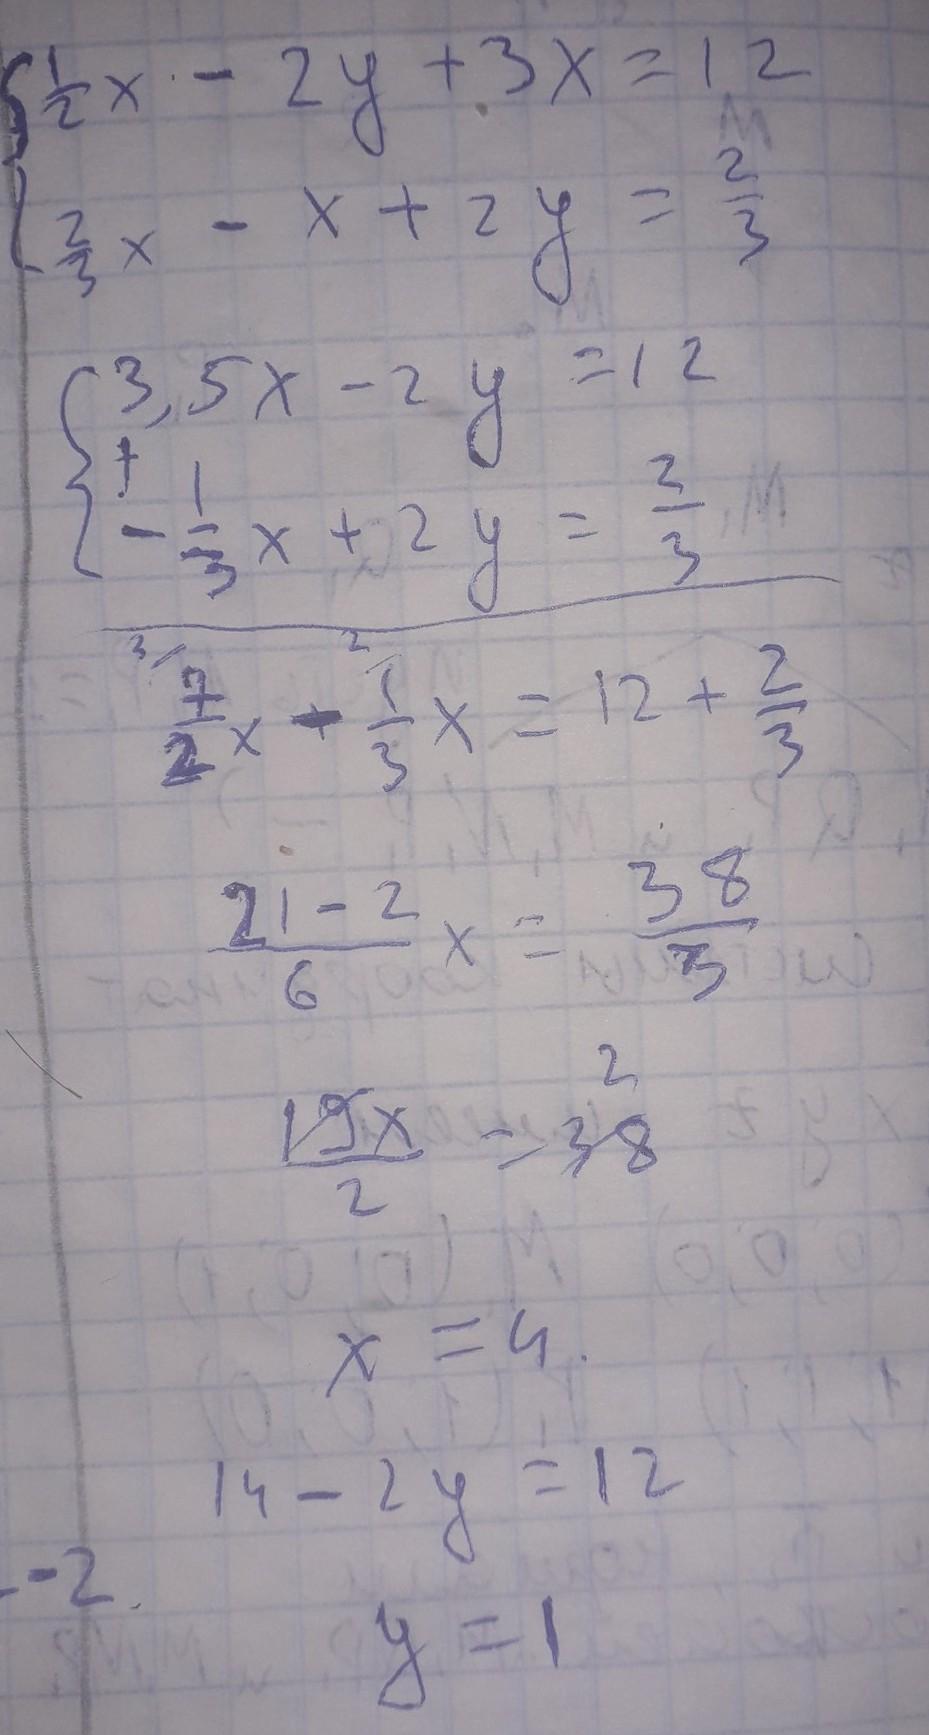 { 1/2 x - 2y + 3x = 12
2/3 x - x + 2y = 2/3
{ 3,5x - 2y = 12
+
- 1/3 x + 2y = 2/3
3/ 7/2 x - 2/ 1/3 x = 12 + 2/3
(21 - 2)/6 x = 38/3
19x/2 = 38 2
x = 4.
14 - 2y = 12
-2.
y = 1